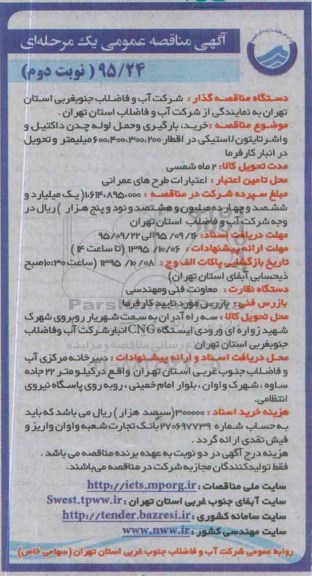 آگهی مناقصه عمومی یک مرحله‌ای
۹۵/۲۴ ( نوبت دوم )
دستگاه مناقصه گذار : شرکت آب و فاضلاب جنوبغربی استان
تهران به نمایندگی از شرکت آب و فاضلاب استان تهران .
موضوع مناقصه : خرید، بارگیری وحمل لوله چدن داکتیل و
واشر تایتون لاستیکی در اقطار ۶۰۰،۴۰۰،۳۰۰،۲۰۰ میلیمتر و تحویل
در انبار کارفرما
مدت تحویل کالا: ۲ ماه شمسی
محل تامین اعتبار : اعتبارات طرح های عمرانی
مبلغ سپرده شرکت در مناقصه : ۱.۶۱۴.۸۹۵.۰۰۰( یک میلیارد و
ششصد و چهارده میلیون و هشتصد و نود و پنج هزار ) ریال در
وجه شرکت آب و فاضلاب استان تهران
مهلت دریافت اسناد: ۹۵/۰۹/۱۶ الی ۹۵/۰۹/۲۲
مهلت ارائه پیشنهادات : ۱۳۹۵/۱۰/۰۶ (تا ساعت ۱۴ )
تاریخ بازگشایی پاکات الف و ج : ۱۳۹۵/۱۰/۰۸ (ساعت ۱۰:۳۰صبح
ذیحسابی آبفای استان تهران)
دستگاه نظارت : معاونت فنی ومهندسی
بازرس فنی: بازرس مورد تایید کارفرما
محل تحویل کالا : سه راه آدران به سمت شهریار روبروی شهرک
شهید زواره ای ورودی ایستگاه CNG انبار شرکت آب وفاضلاب
جنوبغربی استان تهران
محل دریافت اسناد و ارائه پیشنهادات : دبیرخانه مرکزی آب
و فاضلاب جنوب غربی استان تهران واقع در کیلومتر ۲۲ جاده
ساوه ،شهرک واوان ، بلوار امام خمینی ، رو به روی پاسگاه نیروی
انتظامی.
هزینه خرید اسناد : ۳۰۰۰۰۰(سیصد هزار) ریال می باشد که باید
به حساب شماره ۲۷۰۶۹۷۷۳۹ بانک تجارت شعبه واوان واریز و
فیش نقدی ارائه گردد .
هزینه درج آگهی در دو نوبت به عهده برنده مناقصه می باشد .
فقط تولیدکنندگان مجاز به شرکت در مناقصه می‌باشند.
سایت ملی مناقصات : http://iets.mporg.ir
سایت آبفای جنوب غربی استان تهران : Swest.tpww.ir
سایت سامانه کشوری : http://tender.bazresi.ir
سایت مهندسی کشور : www.nww.ir
روابط عمومی شرکت آب و فاضلاب جنوب غربی استان تهران (سهامی خاص)